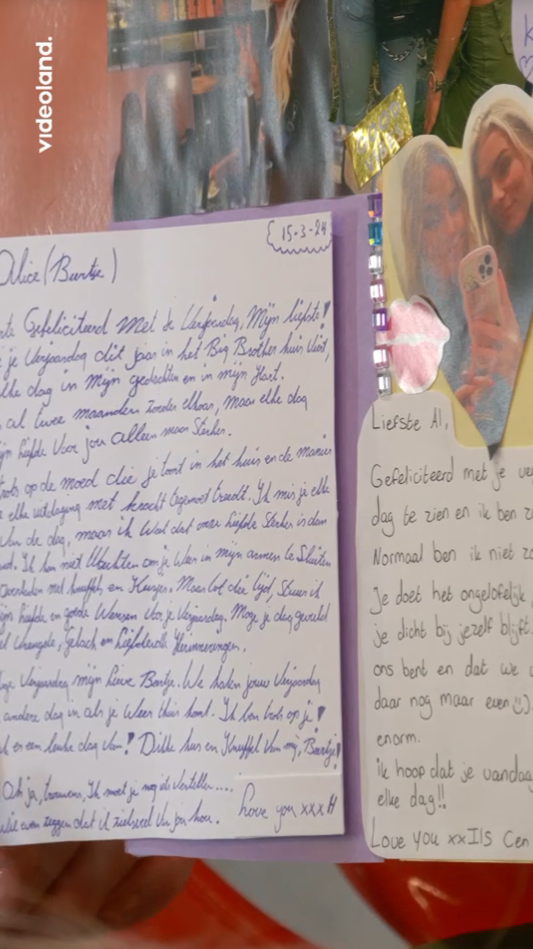 videoland.
K
15-3-24
Alice (Beertje)
Gefeliciteerd met de Verjaardag, Mijn liefste
je Verjaardag dit jaar in het Big Brother huis Viert,
elke dag in mijn gedachten en in mijn Hart.
al twee maanden zonder elkaar, maar elke dag
mijn liefde Voor jou alleen maar Sterker.
trots op de moed die je toont in het huis en de manier
elke uitdaging met kracht tegemoet treedt. Ik mis je elke
Van de dag, maar ik Weet dat onze liefde Sterker is dan
Ik kan niet Wachten om je Weer in mijn armen te Sluiten
overladen met knuffels en Kusjes. Maar tot die tijd, Stuur ik
mijn liefde en goede Wensen Voor je Verjaardag. Moge je dag gevuld
Vreugde, Gelach en liefdevolle Herinneringen.
Verjaardag mijn lieve Beertje. We halen jouw Verjaardag
andere dag in als je Weer thuis komt. Ik ben trots op je
er een leuke dag Van! Dikke kus en Knuffel Van mij, Beertje!
Oh ja, trouwens, Ik moet je nog iets Vertellen....
even zeggen dat ik zielsveel Van jou hou.
Love you xxx H
Liefste Al,
Gefeliciteerd met je
dag te zien en ik ben
Normaal ben ik niet
Je doet het ongelofelijk
je dicht bij jezelf blijft.
ons bent en dat we
daar nog maar even :)
enorm.
ik hoop dat je vandaag
elke dag!!
Love you xx Ils Cen